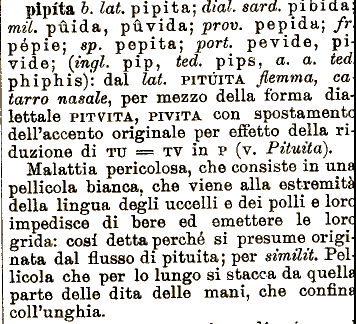 pipita b. lat. pipita; dial. sard. pibida;
mil. pûida, pûvida; prov. pepida; fr.
pépie; sp. pepita; port. pevide, pi-
vide; (ingl. pip, ted. pips, a. a. ted.
phiphis): dal lat. PITÚITA flemma, ca-
tarro nasale, per mezzo della forma dia-
lettale PITVITA, PIVITA con spostamento
dell'accento originale per effetto della ri-
duzione di TU = TV in P (v. Pituita).
Malattia pericolosa, che consiste in una
pellicola bianca, che viene alla estremità
della lingua degli uccelli e dei polli e loro
impedisce di bere ed emettere le loro
grida: cosí detta perché si presume origi-
nata dal flusso di pituita; per similit. Pel-
licola che per lo lungo si stacca da quella
parte delle dita delle mani, che confina
coll'unghia.